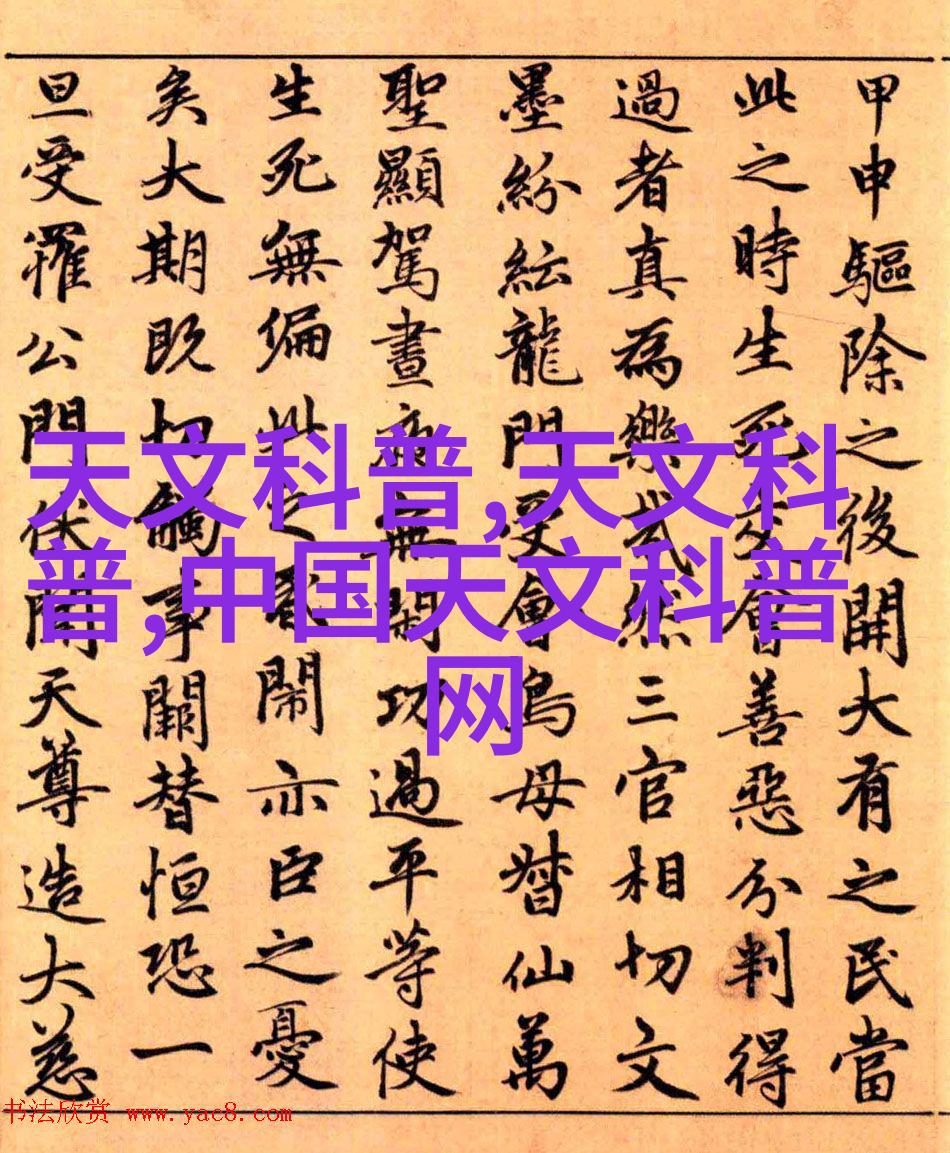 甲申驅除之後開大有之民當
此之時生死交會善惡分判得
過者真為樂哉然三官相切文
墨紛紜龍門受會鳥母督仙萬
聖顯駕晝夜無閑功過平等使
生死無偏此之鬧亦臣之憂
矣大期既切觸事闕替恒恐一
旦受罹公門伏聞天尊造大慈
天文科普,天文科
普,中国天文科普
网
书法欣赏 www.yac8.com